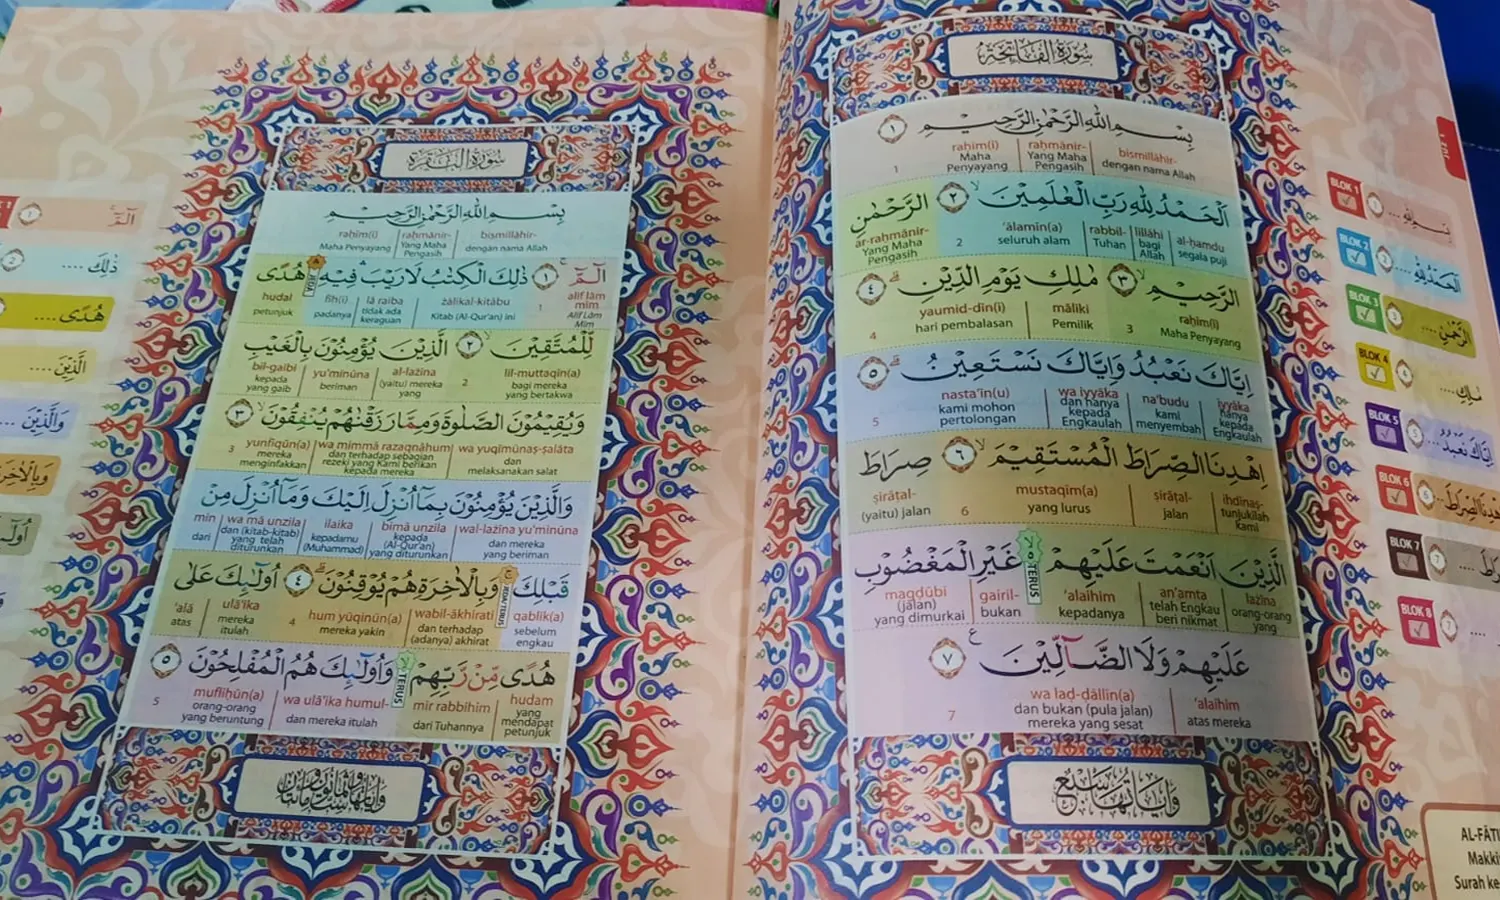 سُورَةُ الْفَاتِحَةِ
بِسْمِ اللّٰهِ الرَّحْمٰنِ الرَّحِيْمِ ١
bismillāhir- raḥmānir- raḥīm(i)
dengan nama Allah Yang Maha Pengasih Maha Penyayang
1
اَلْحَمْدُ لِلّٰهِ رَبِّ الْعٰلَمِيْنَ ٢ الرَّحْمٰنِ
al-ḥamdu lillāhi rabbil- ‘ālamīn(a) ar-raḥmānir-
segala puji bagi Allah Tuhan seluruh alam 2 Yang Maha Pengasih
الرَّحِيْمِ ٣ مٰلِكِ يَوْمِ الدِّيْنِ ٤
raḥīm(i) māliki yaumid-dīn(i)
Maha Penyayang 3 Pemilik hari pembalasan 4
اِيَّاكَ نَعْبُدُ وَاِيَّاكَ نَسْتَعِيْنُ ٥
iyyāka na‘budu wa iyyāka nasta‘īn(u)
hanya kepada Engkaulah kami menyembah dan hanya kepada Engkaulah kami mohon pertolongan 5
اِهْدِنَا الصِّرَاطَ الْمُسْتَقِيْمَ ٦ صِرَاطَ
ihdinaṣ- ṣirāṭal- mustaqīm(a) ṣirāṭal-
tunjukilah kami jalan yang lurus 6 (yaitu) jalan
الَّذِيْنَ اَنْعَمْتَ عَلَيْهِمْ ۙ ە غَيْرِ الْمَغْضُوْبِ
TERUS
lażīna an‘amta ‘alaihim gairil- magḍūbi
orang-orang yang telah Engkau beri nikmat kepadanya bukan (jalan) yang dimurkai
عَلَيْهِمْ وَلَا الضَّاۤلِّيْنَ ٧
‘alaihim wa laḍ-ḍāllīn(a)
atas mereka dan bukan (pula jalan) mereka yang sesat 7
وَاٰيَاتُهَا سَبْعٌ
JUZ 1
BLOK 1 بِسْمِ اللّٰهِ ....
BLOK 2 اَلْحَمْدُ لِلّٰهِ ....
BLOK 3 الرَّحْمٰنِ ....
BLOK 4 مٰلِكِ ....
BLOK 5 اِيَّاكَ نَعْبُدُ ....
BLOK 6 اِهْدِنَا الصِّرَاطَ ....
BLOK 7
BLOK 8
AL-FĀTI
Makki
Surah ke
سُورَةُ الْبَقَرَةِ
بِسْمِ اللّٰهِ الرَّحْمٰنِ الرَّحِيْمِ
bismillāhir- raḥmānir- raḥīm(i)
dengan nama Allah Yang Maha Pengasih Maha Penyayang
الۤمّۤ ١ ذٰلِكَ الْكِتٰبُ لَا رَيْبَ فِيْهِ هُدًى
alif lām mīm żālikal-kitābu lā raiba fīh(i) hudal
Alif Lām Mīm 1 Kitab (Al-Qur'an) ini tidak ada keraguan padanya petunjuk
لِّلْمُتَّقِيْنَ ٢ الَّذِيْنَ يُؤْمِنُوْنَ بِالْغَيْبِ
lil-muttaqīn(a) al-lażīna yu'minūna bil-gaibi
bagi mereka yang bertakwa 2 (yaitu) mereka yang beriman kepada yang gaib
وَيُقِيْمُوْنَ الصَّلٰوةَ وَمِمَّا رَزَقْنٰهُمْ يُنْفِقُوْنَ ٣
wa yuqīmūnaṣ-ṣalāta wa mimmā razaqnāhum yunfiqūn(a)
dan melaksanakan salat dan terhadap sebagian rezeki yang Kami berikan kepada mereka mereka menginfakkan 3
وَالَّذِيْنَ يُؤْمِنُوْنَ بِمَآ اُنْزِلَ اِلَيْكَ وَمَآ اُنْزِلَ مِنْ
wal-lażīna yu'minūna bimā unzila ilaika wa mā unzila min
dan mereka yang beriman kepada (Al-Qur'an) yang diturunkan kepadamu (Muhammad) dan (kitab-kitab) yang telah diturunkan dari
قَبْلِكَ ۚ وَبِالْاٰخِرَةِ هُمْ يُوْقِنُوْنَ ٤ اُولٰۤىِٕكَ عَلٰى
qablik(a) wabil-ākhirati hum yūqinūn(a) ulā'ika ‘alā
sebelum engkau dan terhadap (adanya) akhirat mereka yakin 4 mereka itulah atas
هُدًى مِّنْ رَّبِّهِمْ ۙ وَاُولٰۤىِٕكَ هُمُ الْمُفْلِحُوْنَ ٥
TERUS
hudam mir rabbihim wa ulā'ika humul- mufliḥūn(a)
yang mendapat petunjuk dari Tuhannya dan mereka itulah orang-orang yang beruntung 5
الۤمّۤ
ذٰلِكَ ....
هُدًى ....
الَّذِيْنَ ....
وَالَّذِيْنَ ...
وَبِالْاٰخِرَ